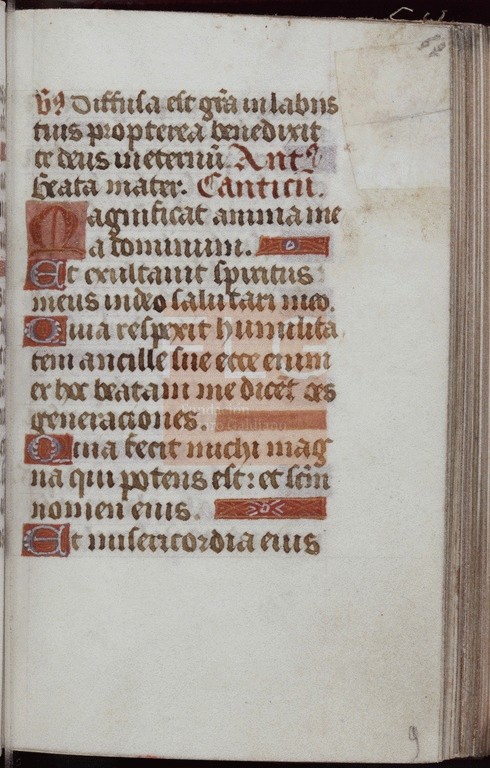 V̄ Diffusa est gr̄a in labijs
tuis propterea benedixit
te deus in eternū. Ant̄
Beata mater. Canticū.
Magnificat anima me
a dominum.
Et exultauit spiritus
meus in deo salutari meo.
Quia respexit humilita
tem ancille sue ecce enim
ex hoc beatam me dicēt ōēs
generaciones.
Quia fecit michi mag
na qui potens est: et sc̄m
nomen eius.
Et misericordia eius
9